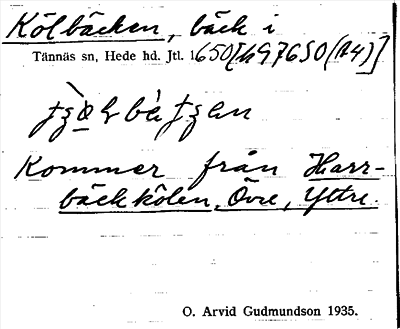 Kölbäcken, bäck i
Tännäs sn, Hede hd. Jtl. 1650[h97650(A4)]
Kommer från Harr-
bäckkölen, Övre, Yttre.
O. Arvid Gudmundson 1935.